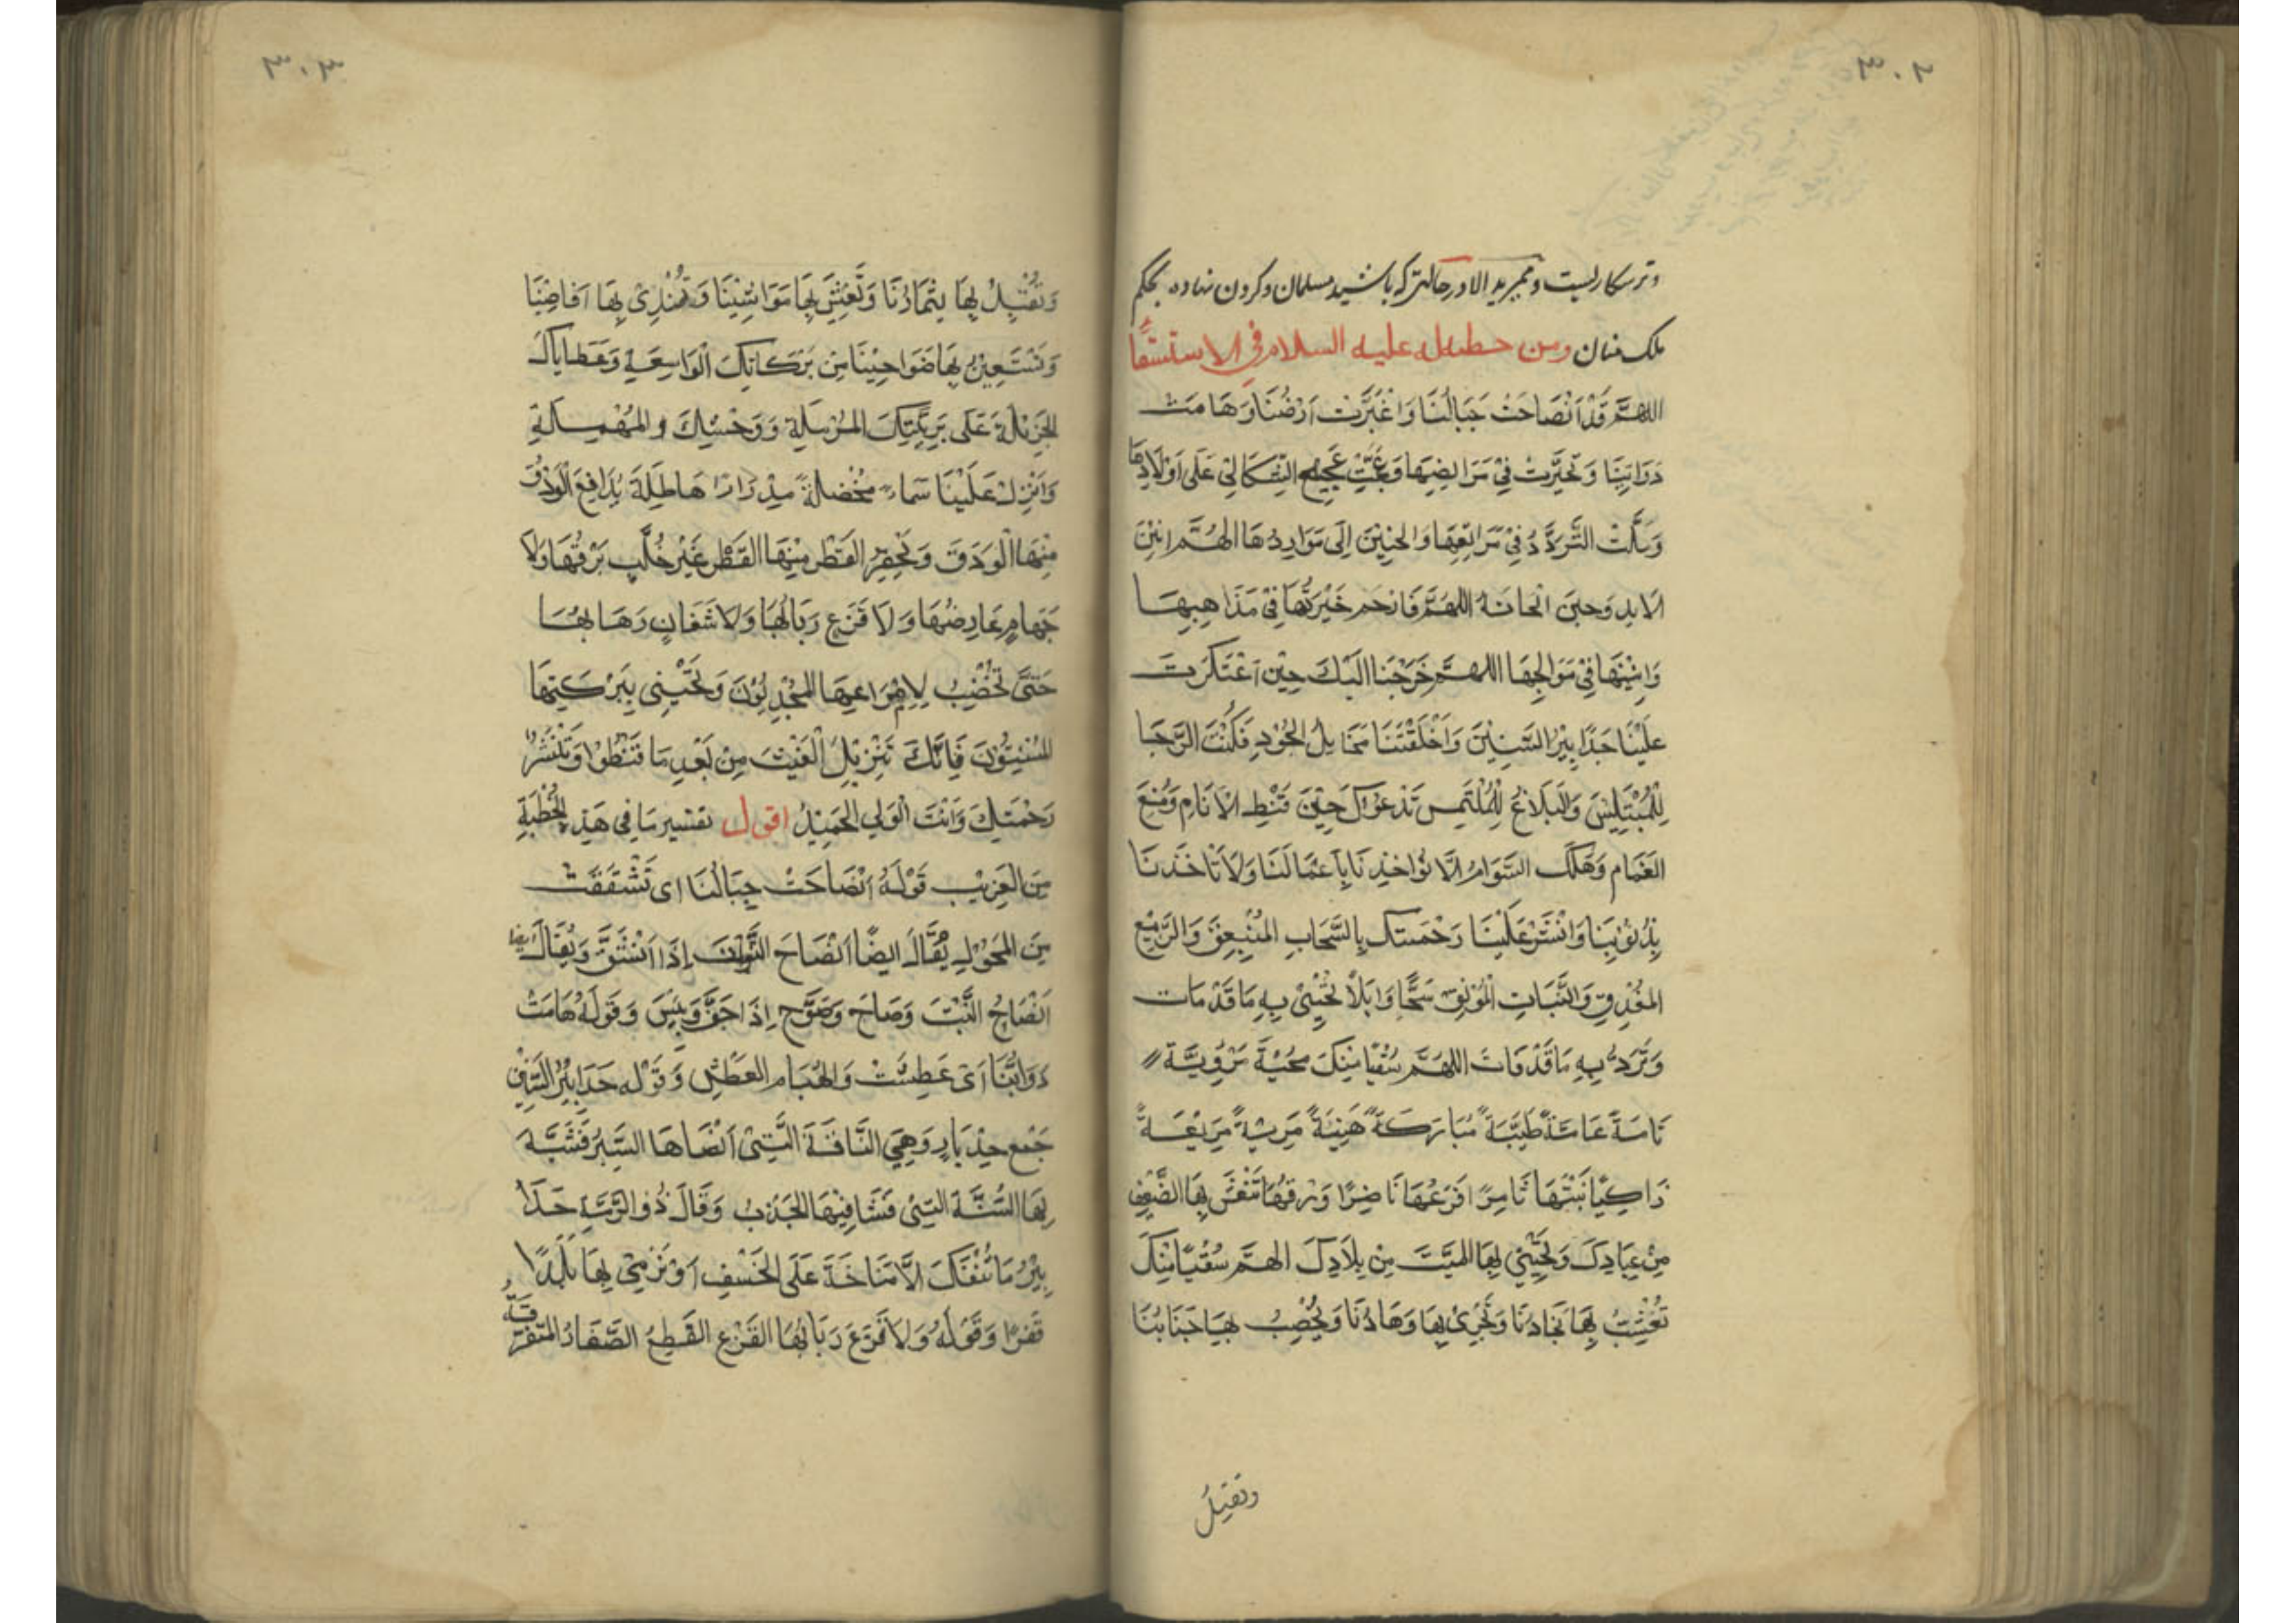 ٣٠٢
و ترسکار لیست و ممیرید الا در حالتی که باشید مسلمان و کردن نهاده بحکم
ملک منان ومن خطبه له عليه السلام في الاستسقا
اللهمَّ قَدْ اَنْصَاحَتْ جَبَالُنَا وَاغْبَرَّتْ اَرْضُنَا وَهَامَتْ
دَوَابّنَا وَتَحَيَّرَتْ فِيْ مَرَابِضِهَا وَعَجَّتْ عَجِيْجَ الثَّكَالَىٰ عَلَى اَوْلَادِهَا
وَمَلَّتْ التَّرَدُّدُ فِيْ مَرَاتِعِهَا وَالحَنِيْنَ اِلَى مَوَارِدِهَا الهُمَّ انِيْنَ
الابد وَحِينَ الحانة اللهُمَّ فَارْحَم حَيْرَتَهَا فِيْ مَذَاهِبِهَا
وَاَنِيْنَهَا فِيْ مَوَالِجِهَا اللهمَّ خَرَجْنَا اِلَيْكَ حِيْنَ اعْتَكَرَتْ
عَلَيْنَا حَدَابِيْرُ السَّنِيْنَ وَاَخْلَفَتْنَا مَخَايِلُ الجُوْدِ فَكُنْتَ الرَّجَا
لِلْمُبْتَئِسَ وَالبَلَاغُ لِلْمُلْتَمِسِ نَدْعُوْكَ حِيْنَ قَنَطَ الاَنَامِ وَمُنِعَ
الغَمَام وَهَلَكَ السَّوَامُ اَلَّا تُوَاخِذنَا بِاَعْمَالَنَا وَلَا تَاْخُذَنَا
بِذُنُوْبِنَا وَانْشُرْ عَلَيْنَا رَحْمَتَكَ بِالسَّحَابِ المُنْبَعِقِ وَالرَّبِيْعِ
المغْدِقِ وَالنَّبَاتِ المُوْنِقِ سَحًّا وَابَلاً تُحْيِيْ بِهِ مَا قَدْ مَات
وَتَرُدّ بِهِ مَا قَدْ فَاتَ اللهُمَّ سُقْيَا مِنْكَ مُحْيِيَةَ مُرْوِيَّة
تَامَّةً عَامَّةً طَيِّبَةً مُبَارَكَةً هَنِيئَةً مَرِيئَةً مَرِيْعَةً
زَاكِيًا نَبْتُهَا ثَامِرًا فَرْعُهَا نَاضِرًا وَرَقُهَا تَنْعَشُ بِهَا الضَّعِيْفَ
مِنْ عِبَادِكَ وَتُحْيِيْ بِهَا المَيِّتَ مِنْ بِلَادِكَ الهمَّ سُقْيًا مِنْكَ
تُعْشِبُ بِهَا نِجَادُنَا وَتَجْرِيْ بِهَا وَهَادُنَا وَيُخْصِبُ بِهَا جَنَابُنَا
وتقبلُ
٣٠٣
وَتُقْبِلُ بِهَا ثِمَارُنَا وَتَعِيْشَ بِهَا مَوَاشِيْنَا وَتَنْدِىْ بِهَا اَقَاصِيْنَا
وَتَسْتَعِيْنُ بِهَا ضَوَاحِيْنَا مِنْ بَرَكَاتِكَ الْوَاسِعَةِ وَعَطَايَاكَ
الجَزِيْلَةِ عَلَى بَرِيَّتِكَ المُرْمِلَةِ وَوَحْشِكَ والمُهْمَلَةِ
وَاَنْزِل عَلَيْنَا سَمَاءً مُخْضِلَةً مِدْرَارًا هَاطِلَةً يُدَافِعُ الْوَدْقُ
مِنْهَا الْوَدَقَ وَيَحْفِزُ القَطْر مِنْهَا القَطْر غَيْرَ خُلَّبٍ بَرْقُهَا وَلَا
جَهَامٍ عَارِضُهَا وَلَا قَزَعٍ رَبَابُهَا وَلَا شَفَّانٍ ذَهَابُهَا
حَتَّى تُخْصِبُ لِاِمْرَاعِهَا المُجْدِبُوْنَ وَتُحْيِىْ بِبَرَكَتِهَا
المُسْنِتُوْنَ فَاِنَّكَ تُنْزِيْلُ الْغَيْثَ مِنْ بَعْدِ مَا قَنَطُوْا وَتَنْشُرُ
رَحْمَتَكَ وَاَنْتَ الْوَلِي الحَمِيْدُ اقول تفسير مَا فِي هَذِ الخُطْبَةِ
مِنَ الغَرِيْبِ قَوْلَهُ اَنْصَاحَتْ جِبَالُنَا اى تَشَقَّقَتْ
مِنَ المُحُوْلِ يُقَالُ ايضًا اَنْصَاحَ الثَّوْبُ اِذَا اَنْشَقَّ وَيُقَالَ ايضا
اَنْصَاحُ النَّبْتَ وَصَاحَ وَصَوَّحَ اِذَا جَفَّ وَيَبِسَ وَقَوْلَهُ هَامَتْ
دَوَابُّنَا اَىْ عَطِشَتْ وَالهُيَام العَطَش وَقَوْله حَدَابِيْرُ السَّنِيْنِ
جَمْع حِدْبَارٍ وَهِيَ النَّاقَةَ الَّتِىْ اَنْضَاهَا السَّيْرُ فَشَبَّهَ
بِهَا السَّنَّةَ الَّتِىْ فَشَا فِيْهَا الجَدْبُ وَقَالَ ذُو الرُّمَّةِ حَدَا
بِيْرُ مَا تَنْفَكَّ اِلَّا مُنَاخَةً عَلَى الخَسْفِ اَوْ نَرْمِىْ بِهَا بَلَدًا
قَفْرًا وَقَوْلَهُ وَلَا قَزَعَ رَبَابُهَا القَزَع القَطِعُ الصَّغَارُ المُتَفَرِّقَةُ